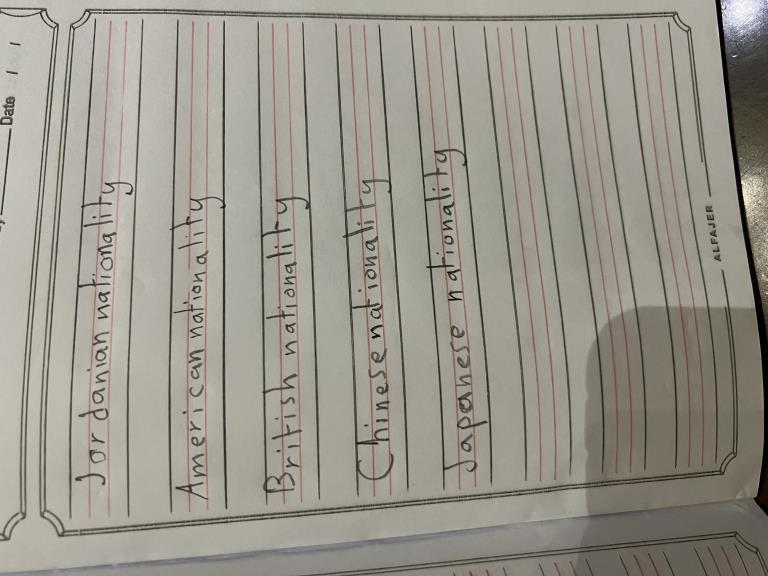 Date / /
Jordanian nationality
American nationality
British nationality
Chinese nationality
Japanese nationality
ALFAJER